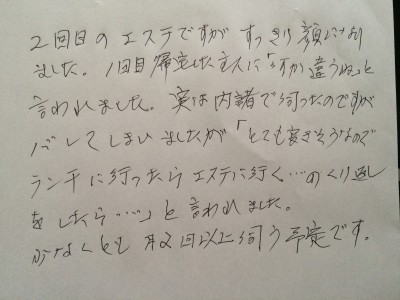 2回目のエステですが すっきり顔になり
ました。1回目帰宅した主人に「何か違うね」と
言われました。実は内諸で伺ったのですが
バレてしまいましたが「とても良さそうなので
ランチに行ったらエステに行く…のくり返し
をしたら……」と言われました。
少なくとも 月2回以上伺う予定です。